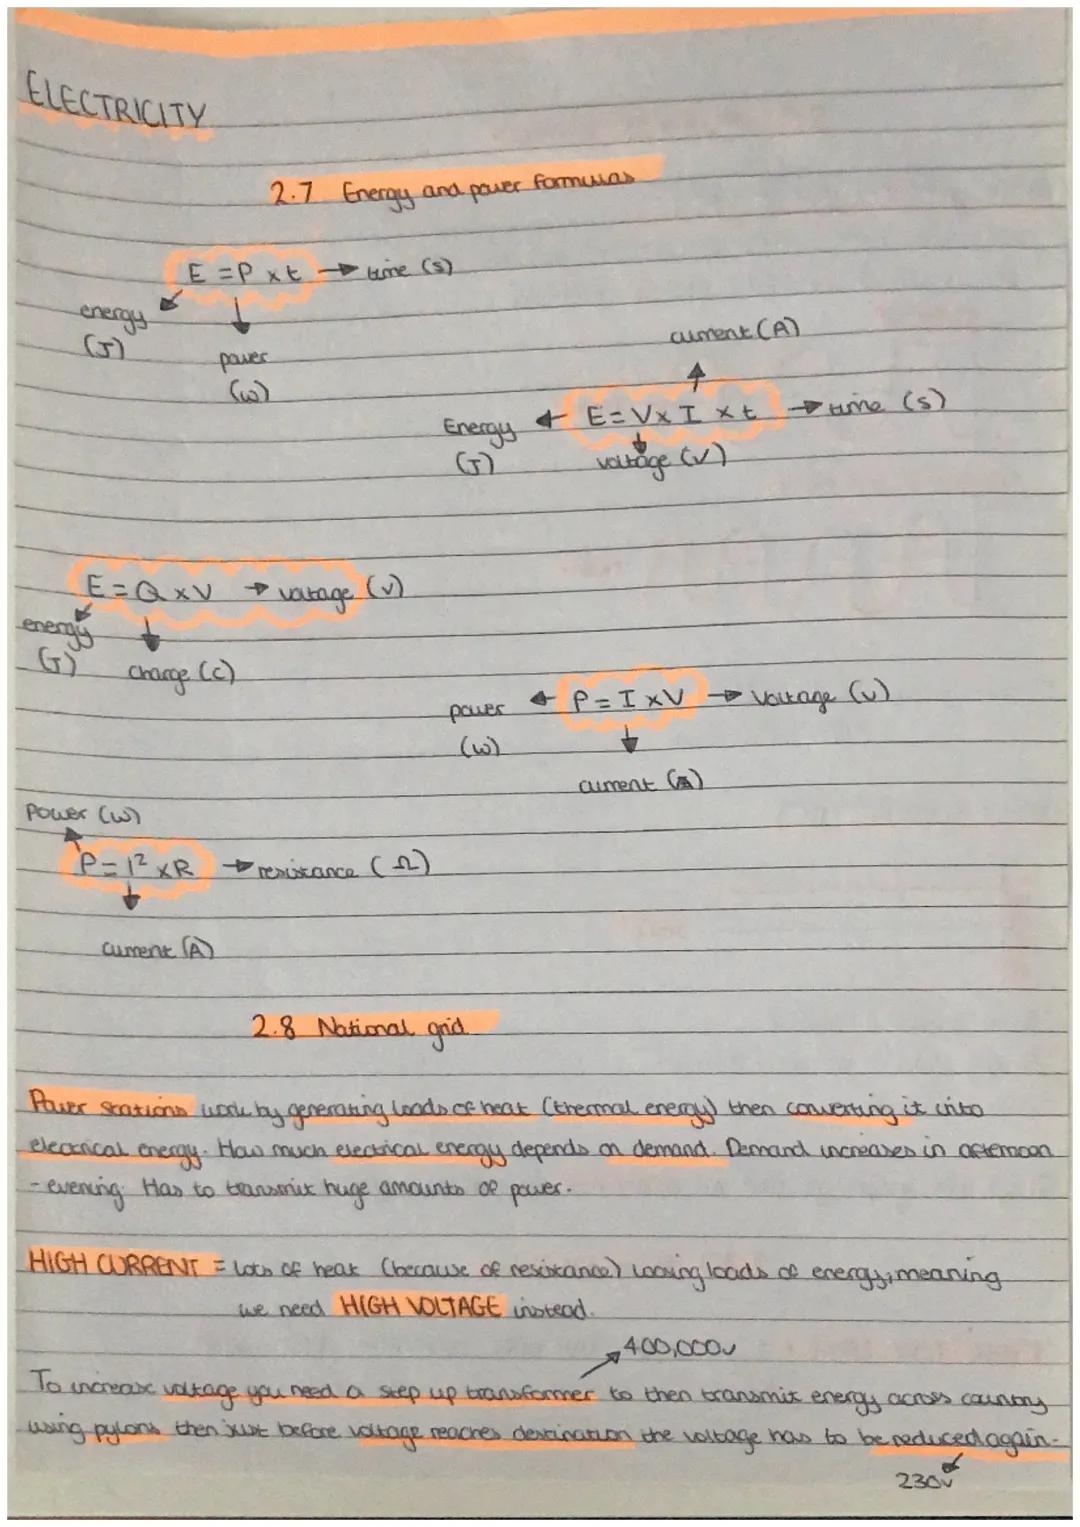 ELECTRICITY
2.7 Energy and power formulas
E = P x t → time (s)
energy
(J)
power
(w)
current (A)
Energy ← E = V x I x t → time (s)
(J)
voltage (V)
E = Q x V → voltage (v)
energy
(J)
charge (c)
power ← P = I x V → Voltage (v)
(w)
current (A)
Power (w)
P = I² x R → resistance (Ω)
current (A)
2.8 National grid
Power stations work by generating loads of heat (thermal energy) then converting it into
electrical energy. How much electrical energy depends on demand. Demand increases in afternoon
- evening. Has to transmit huge amounts of power.
HIGH CURRENT = Lots of heat (because of resistance) loosing loads of energy, meaning
we need HIGH VOLTAGE instead.
400,000v
To increase voltage you need a step up transformer to then transmit energy across country
using pylons then just before voltage reaches destination the voltage has to be reduced again-
230v